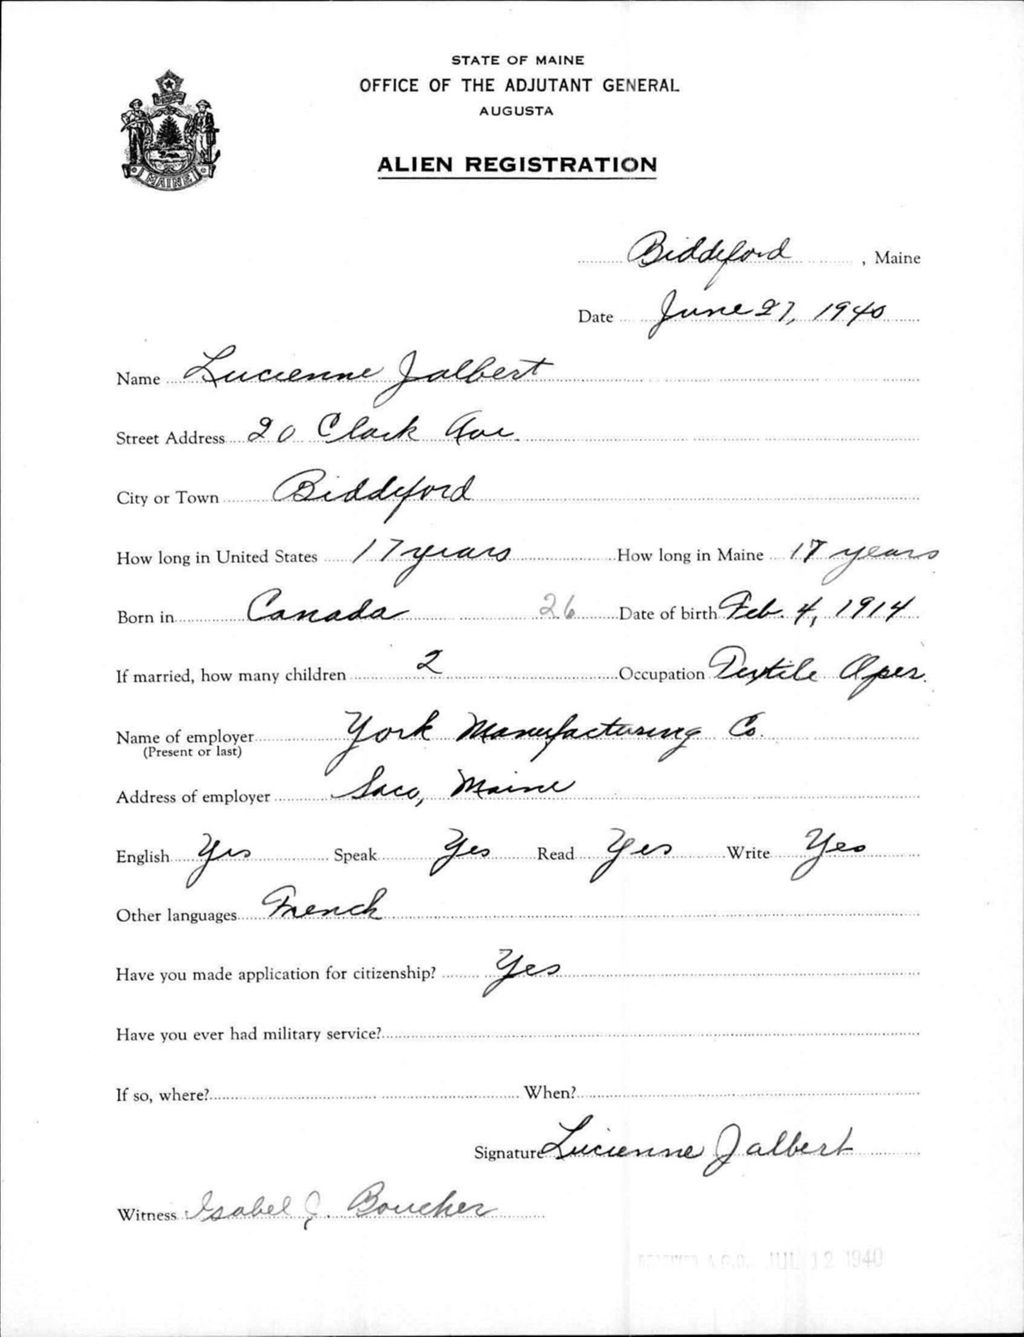 STATE OF MAINE
OFFICE OF THE ADJUTANT GENERAL
AUGUSTA
ALIEN REGISTRATION
MAINE
Biddeford, Maine
Date June 27, 1940
Name Lucienne Jalbert
Street Address 20 Clark Ave.
City or Town Biddeford
How long in United States 17 years How long in Maine 17 years
Born in Canada 26 Date of birth Feb. 4, 1914
If married, how many children 2 Occupation Textile Oper.
Name of employer York Manufacturing Co.
(Present or last)
Address of employer Saco, Maine
English Yes Speak Yes Read Yes Write Yes
Other languages French
Have you made application for citizenship? Yes
Have you ever had military service?
If so, where? When?
Signature Lucienne Jalbert
Witness Isabel J. Boucher
RECEIVED A.G.O. JUL 12 1940